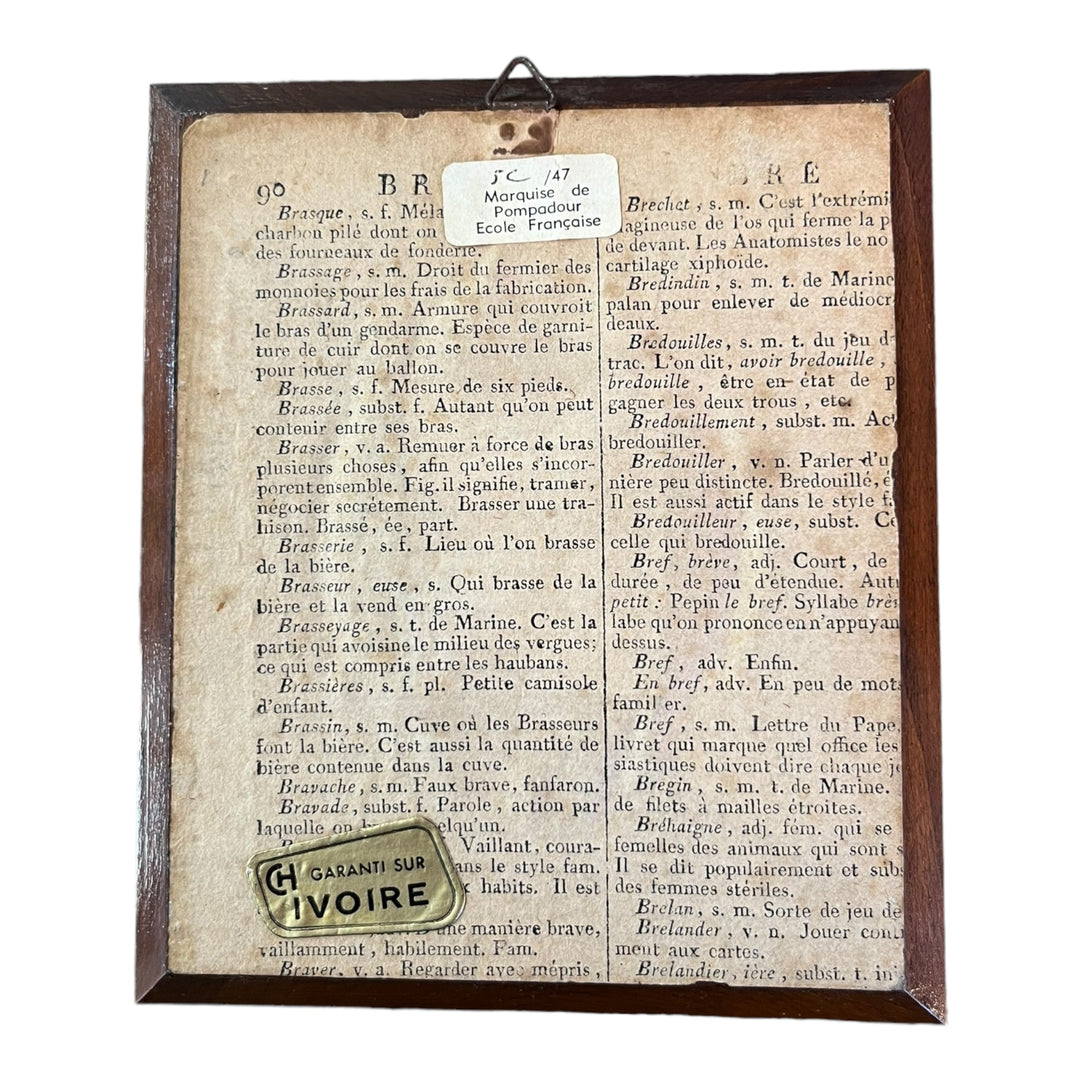 5C /47
Marquise de
Pompadour
Ecole Française
90 BR
Brasque, s. f. Méla
charbon pilé dont on
des fourneaux de fonderie.
Brassage, s. m. Droit du fermier des
monnoies pour les frais de la fabrication.
Brassard, s. m. Armure qui couvroit
le bras d'un gendarme. Espèce de garni-
ture de cuir dont on se couvre le bras
pour jouer au ballon.
Brasse, s. f. Mesure de six pieds.
Brassée, subst. f. Autant qu'on peut
contenir entre ses bras.
Brasser, v. a. Remuer à force de bras
plusieurs choses, afin qu'elles s'incor-
porent ensemble. Fig. il signifie, tramer,
négocier secrètement. Brasser une tra-
hison. Brassé, ée, part.
Brasserie, s. f. Lieu où l'on brasse
de la bière.
Brasseur, euse, s. Qui brasse de la
bière et la vend en gros.
Brasseyage, s. t. de Marine. C'est la
partie qui avoisine le milieu des vergues;
ce qui est compris entre les haubans.
Brassières, s. f. pl. Petite camisole
d'enfant.
Brassin, s. m. Cuve où les Brasseurs
font la bière. C'est aussi la quantité de
bière contenue dans la cuve.
Bravache, s. m. Faux brave, fanfaron.
Bravade, subst. f. Parole, action par
laquelle on elqu'un.
Vaillant, coura-
ans le style fam.
habits. Il est
une manière brave,
vaillamment, habilement. Fam.
Braver, v. a. Regarder avec mépris,
BRE
Brechet, s. m. C'est l'extrémi
lagineuse de l'os qui ferme la p
de devant. Les Anatomistes le no
cartilage xiphoïde.
Bredindin, s. m. t. de Marine
palan pour enlever de médiocr
deaux.
Bredouilles, s. m. t. du jeu d
trac. L'on dit, avoir bredouille,
bredouille, être en état de p
gagner les deux trous, etc.
Bredouillement, subst. m. Act
bredouiller.
Bredouiller, v. n. Parler d'u
nière peu distincte. Bredouillé, é
Il est aussi actif dans le style f
Bredouilleur, euse, subst. Ce
celle qui bredouille.
Bref, brève, adj. Court, de
durée, de peu d'étendue. Aut
petit : Pepin le bref. Syllabe brè
labe qu'on prononce en n'appuyan
dessus.
Bref, adv. Enfin.
En bref, adv. En peu de mots
famil er.
Bref, s. m. Lettre du Pape,
livret qui marque quel office les
siastiques doivent dire chaque j
Bregin, s. m. t. de Marine.
de filets à mailles étroites.
Bréhaigne, adj. fém. qui se
femelles des animaux qui sont s
Il se dit populairement et sub
des femmes stériles.
Brelan, s. m. Sorte de jeu de
Brelander, v. n. Jouer cont
ment aux cartes.
Brelandier, ière, subst. t. in
CH GARANTI SUR
IVOIRE